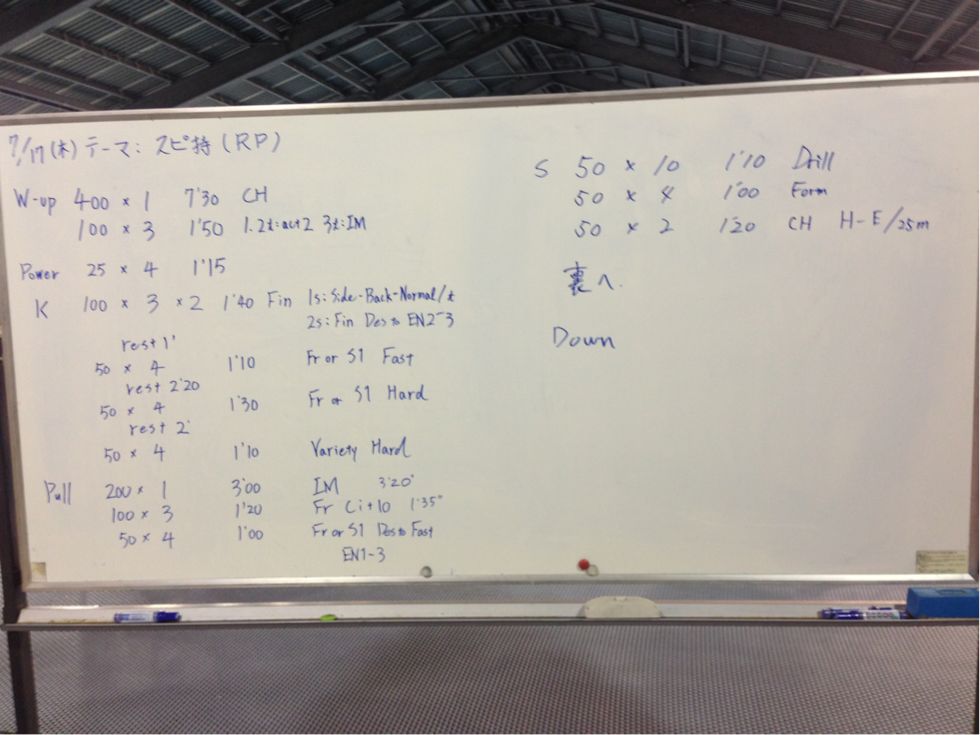 7/17(木) テーマ: スピ持(RP)
W-up 400 × 1 7'30 CH
100 × 3 1'50 1.2t:act2 3t:IM
Power 25 × 4 1'15
K 100 × 3 × 2 1'40 Fin 1s:Side-Back-Normal/t
2s:Fin Des to EN2-3
rest 1'
50 × 4 1'10 Fr or S1 Fast
rest 2'20
50 × 4 1'30 Fr or S1 Hard
rest 2'
50 × 4 1'10 Variety Hard
Pull 200 × 1 3'00 IM 3'20"
100 × 3 1'20 Fr Ci+10 1'35"
50 × 4 1'00 Fr or S1 Des to Fast
EN1-3
S 50 × 10 1'10 Drill
50 × 4 1'00 Form
50 × 2 1'20 CH H-E/25m
裏へ.
Down